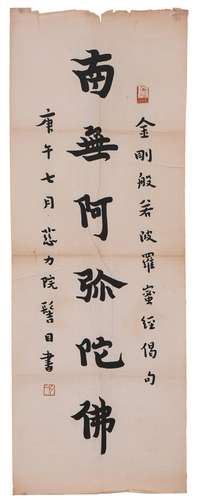 金剛般若波羅蜜經偈句
南無阿弥陀佛
庚午七月悲力院髻目書